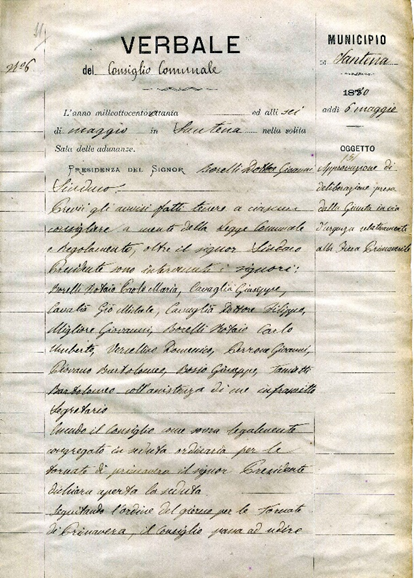 VERBALE
del Consiglio Comunale
L'anno milleottocentottanta ed alli sei
di maggio in Santena nella solita
Sala delle adunanze.
PRESIDENZA DEL SIGNOR Borelli Dottor Giovanni
Sindaco
Previi gli avvisi fatti tenere a ciascun
consigliere a mente della Legge Comunale
e Regolamento, oltre il signor Sindaco
Presidente sono intervenuti i signori:
Borelli Notaio Carlo Maria, Cavaglià Giuseppe,
Cavaglià Dottore Filippo,
Migliore Giovanni, Borelli Notaio Carlo
Umberto, Vercellino Domenico, Perrone Giovanni,
Piovano Bartolomeo, Bosio Giuseppe,
Bartolomeo coll'assistenza di me infrascritto
Segretario
Essendo il Consiglio come sovra legalmente
congregato in seduta ordinaria per la
tornata di primavera il signor Presidente
dichiara aperta la seduta
Seguitando l'ordine del giorno per la Tornata
di Primavera, il Consiglio passa ad udire
MUNICIPIO
Santena
1880
addì 6 maggio
OGGETTO
Approvazione di
deliberazione presa
dalla Giunta in via
d'urgenza relativamente
alla Fiera Primaverile